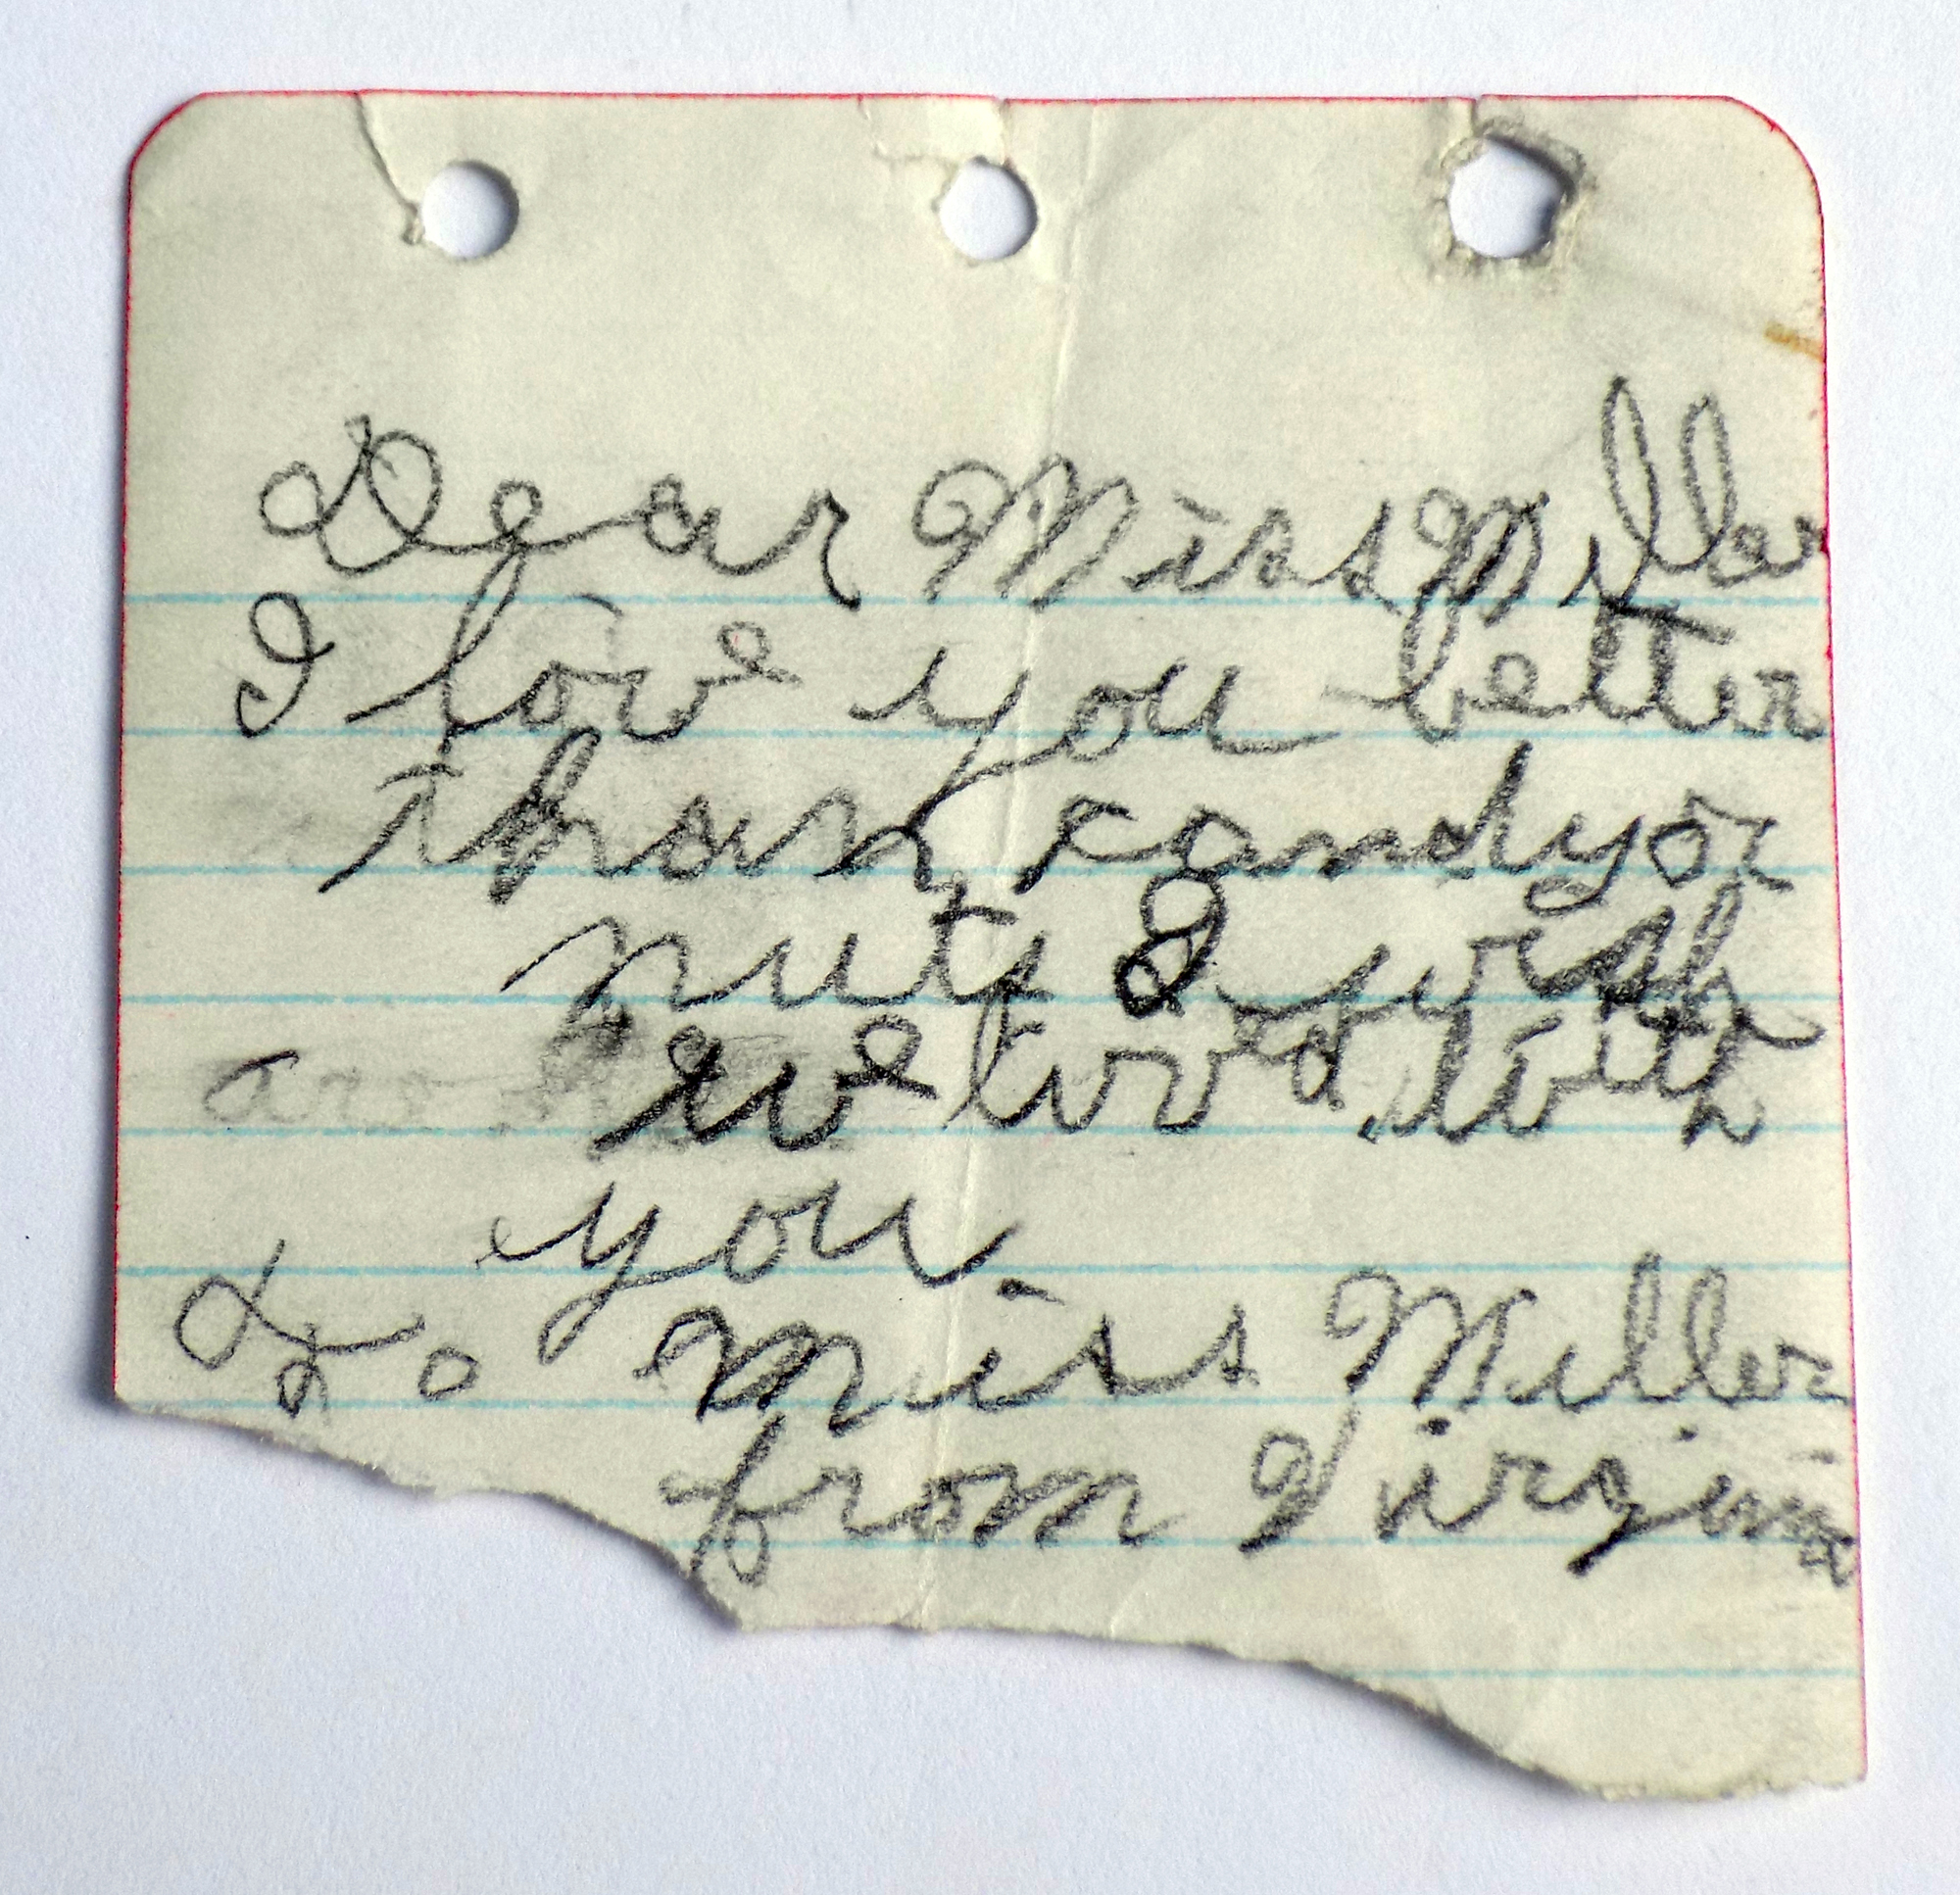 Dear Miss Miller
I love you better
than candy or
nuts I wish
we lived with
you.
To Miss Miller
from Virginia